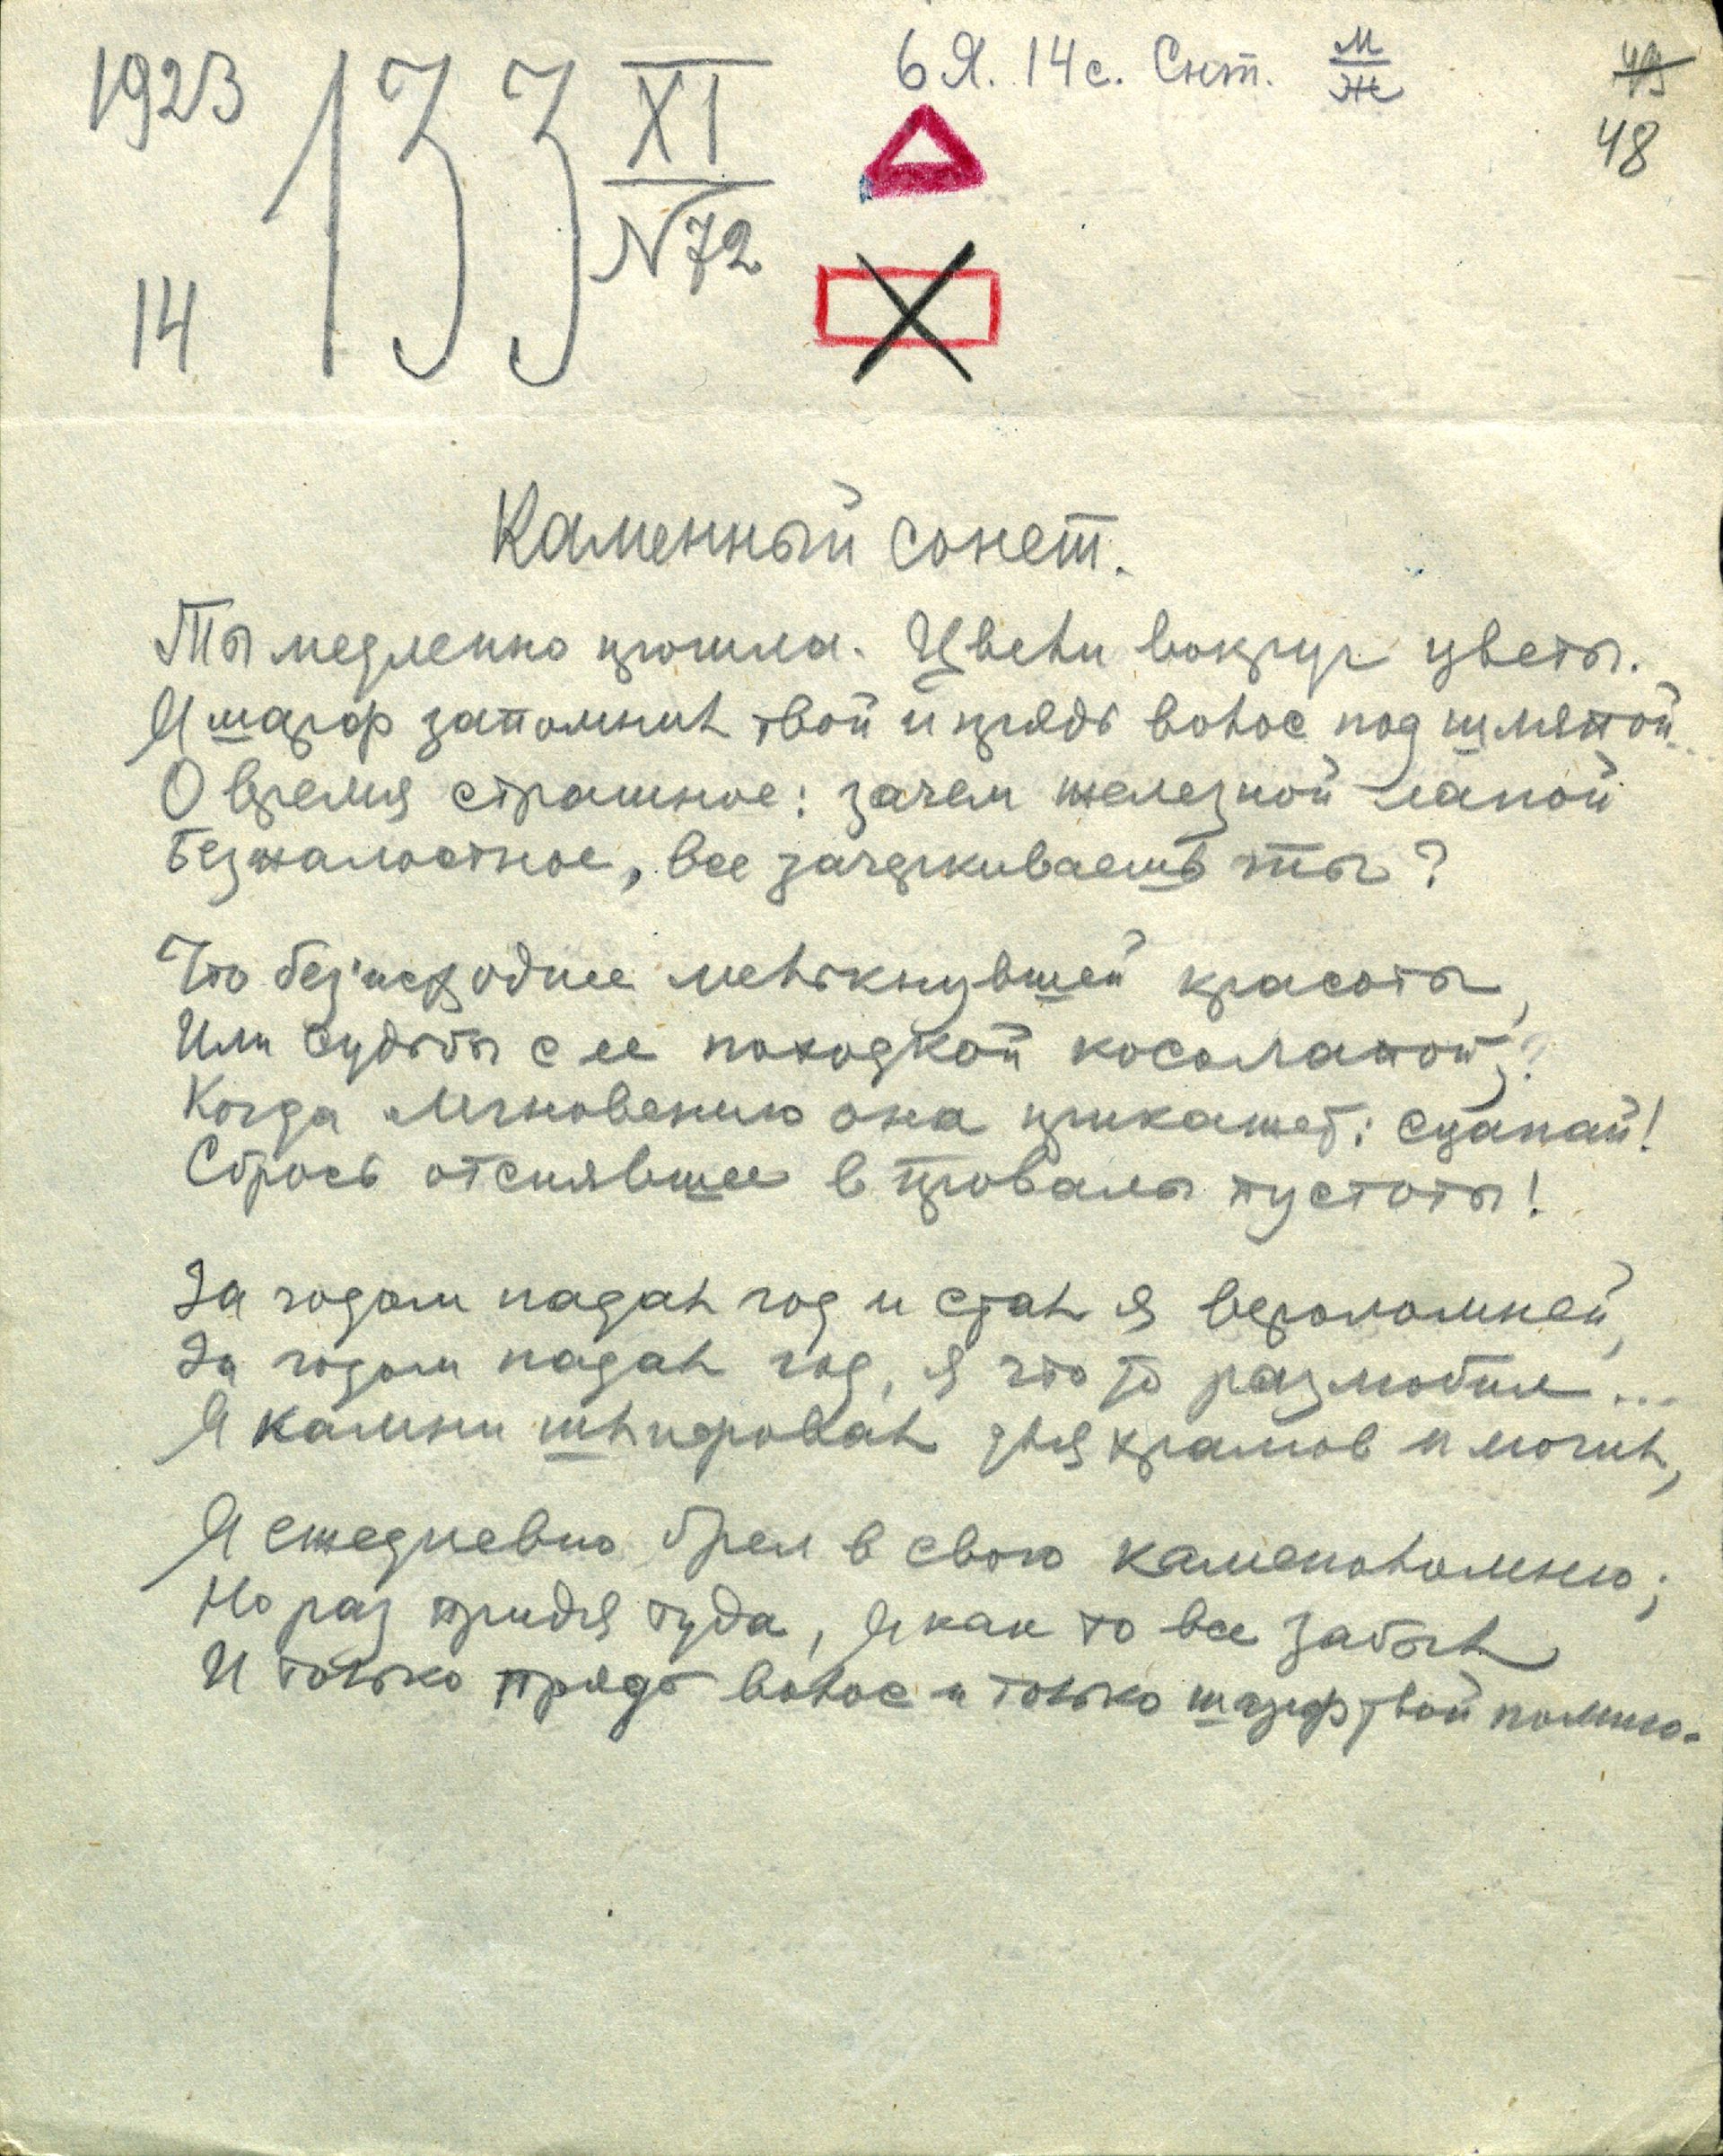 1923 133 XI 6 Я. 14 с. Снт. М/Ж 49
N 72 48
14
Каменный сонет.
Ты медленно прошла. Цвели вокруг цветы.
Я шарф запомнил твой и прядь волос под шляпой.
О время страшное: зачем железной лапой
Безжалостное, все зачеркиваешь ты?
Что без'исходнее мелькнувшей красоты,
Или судьбы с ее походкой косолапой?
Когда Мгновению она прикажет: сцапай!
Сбрось отснявшее в провалы пустоты!
За годом падал год и стал я вероломней,
За годом падал год, я что то разлюбил...
Я камни шлифовал для храмов и могил,
Я ежедневно брел в свою каменоломню;
Но раз придя туда, я как то все забыл
И только прядь волос и только шарф твой помню.